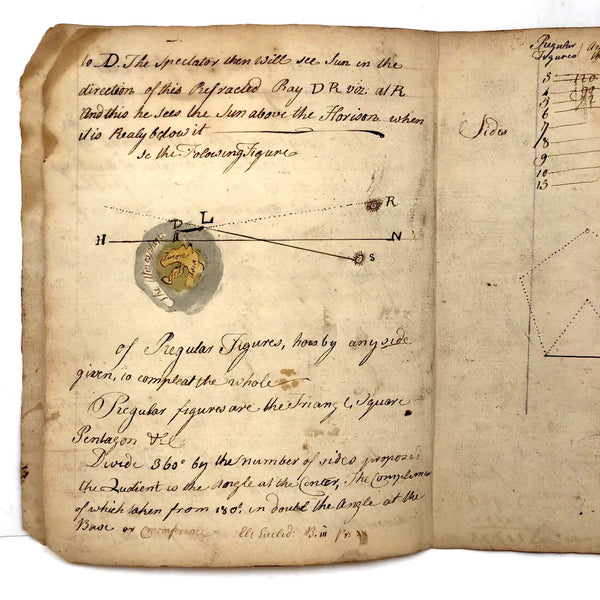 to D. The Spectator then will see Sun in the
direction of this Refracted Ray D R viz. at R
And this he sees the Sun above the Horison when
it is Realy below it
Se the Folowing Figure
R
D L
H N
S
The Atmosphere
of Regular Figures, how by any side
given, to compleat the whole
Regular figures are the Triangle, Square
Pentagon &c
Divide 360° by the number of sides propose
the Qudient is the Angle at the Center, The Complimen
of which taken from 180°. in doubl the Angle at the
Base or Circumference Ele Euclid: B. iii Pr.
Regular
Figures
Sides
3
4
5
6
7
8
9
10
13